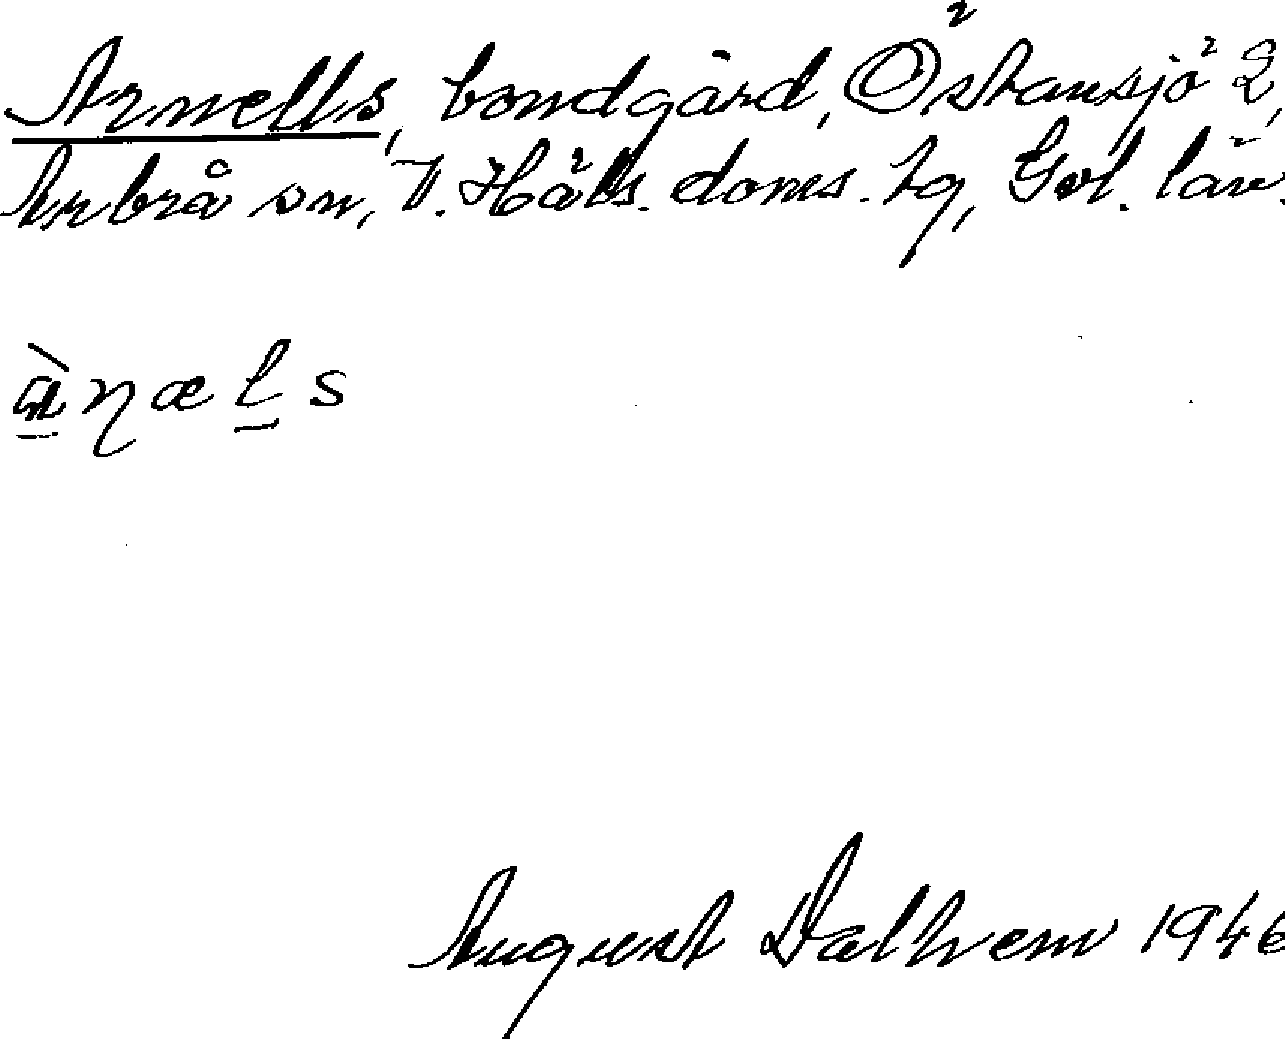 Arnells, bondgård, Östansjö 2,
Arbrå sn, V. Häls. doms. hg, Gvl. län.
àŋæls
August Dalhem 1946